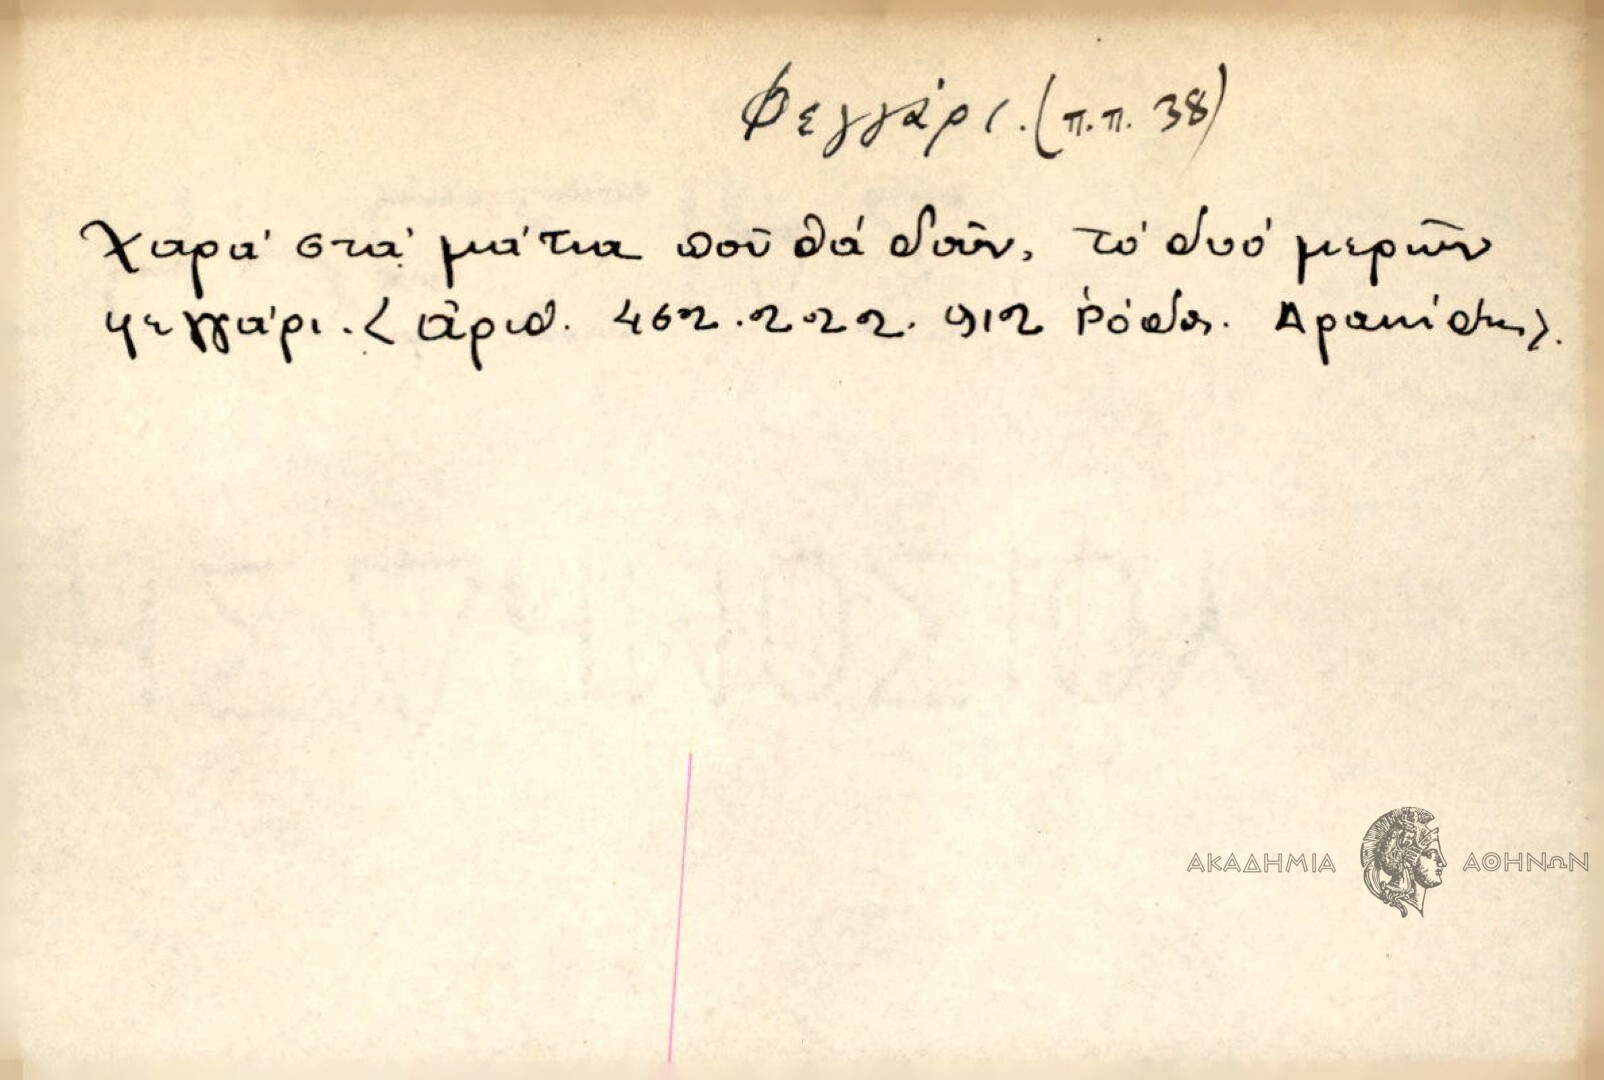 Φεγγάρι. (π.π. 38)
Χαρά στά μάτια ποῦ θά δοῦν, τό δυό μερῶν
φεγγάρι. (ἀριθ. 462. 222. 912 Ῥόδος. Δρακίδης).
ΑΚΑΔΗΜΙΑ ΑΘΗΝΩΝ